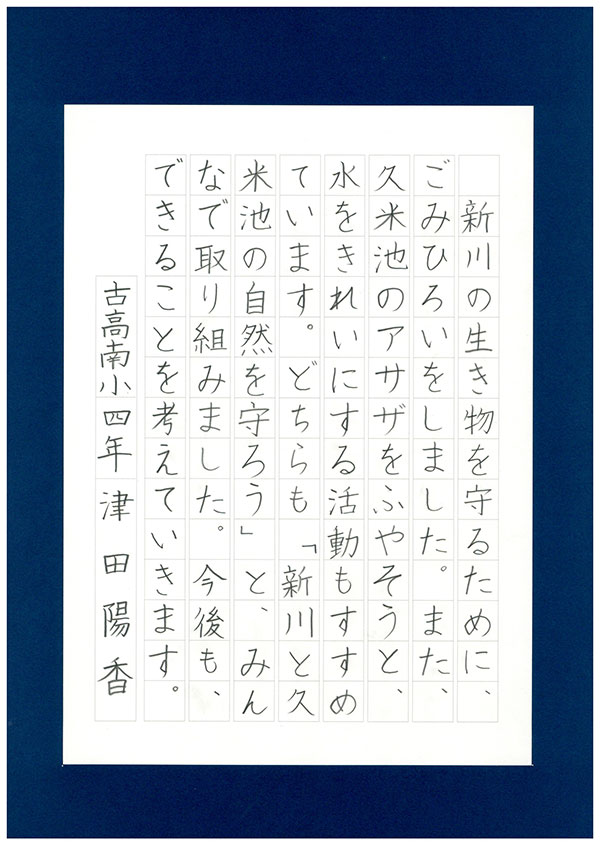 新川の生き物を守るために、
ごみひろいをしました。また、
久米池のアサザをふやそうと、
水をきれいにする活動もすすめ
ています。どちらも「新川と久
米池の自然を守ろう」と、みん
なで取り組みました。今後も、
できることを考えていきます。
古高南小四年　津田陽香